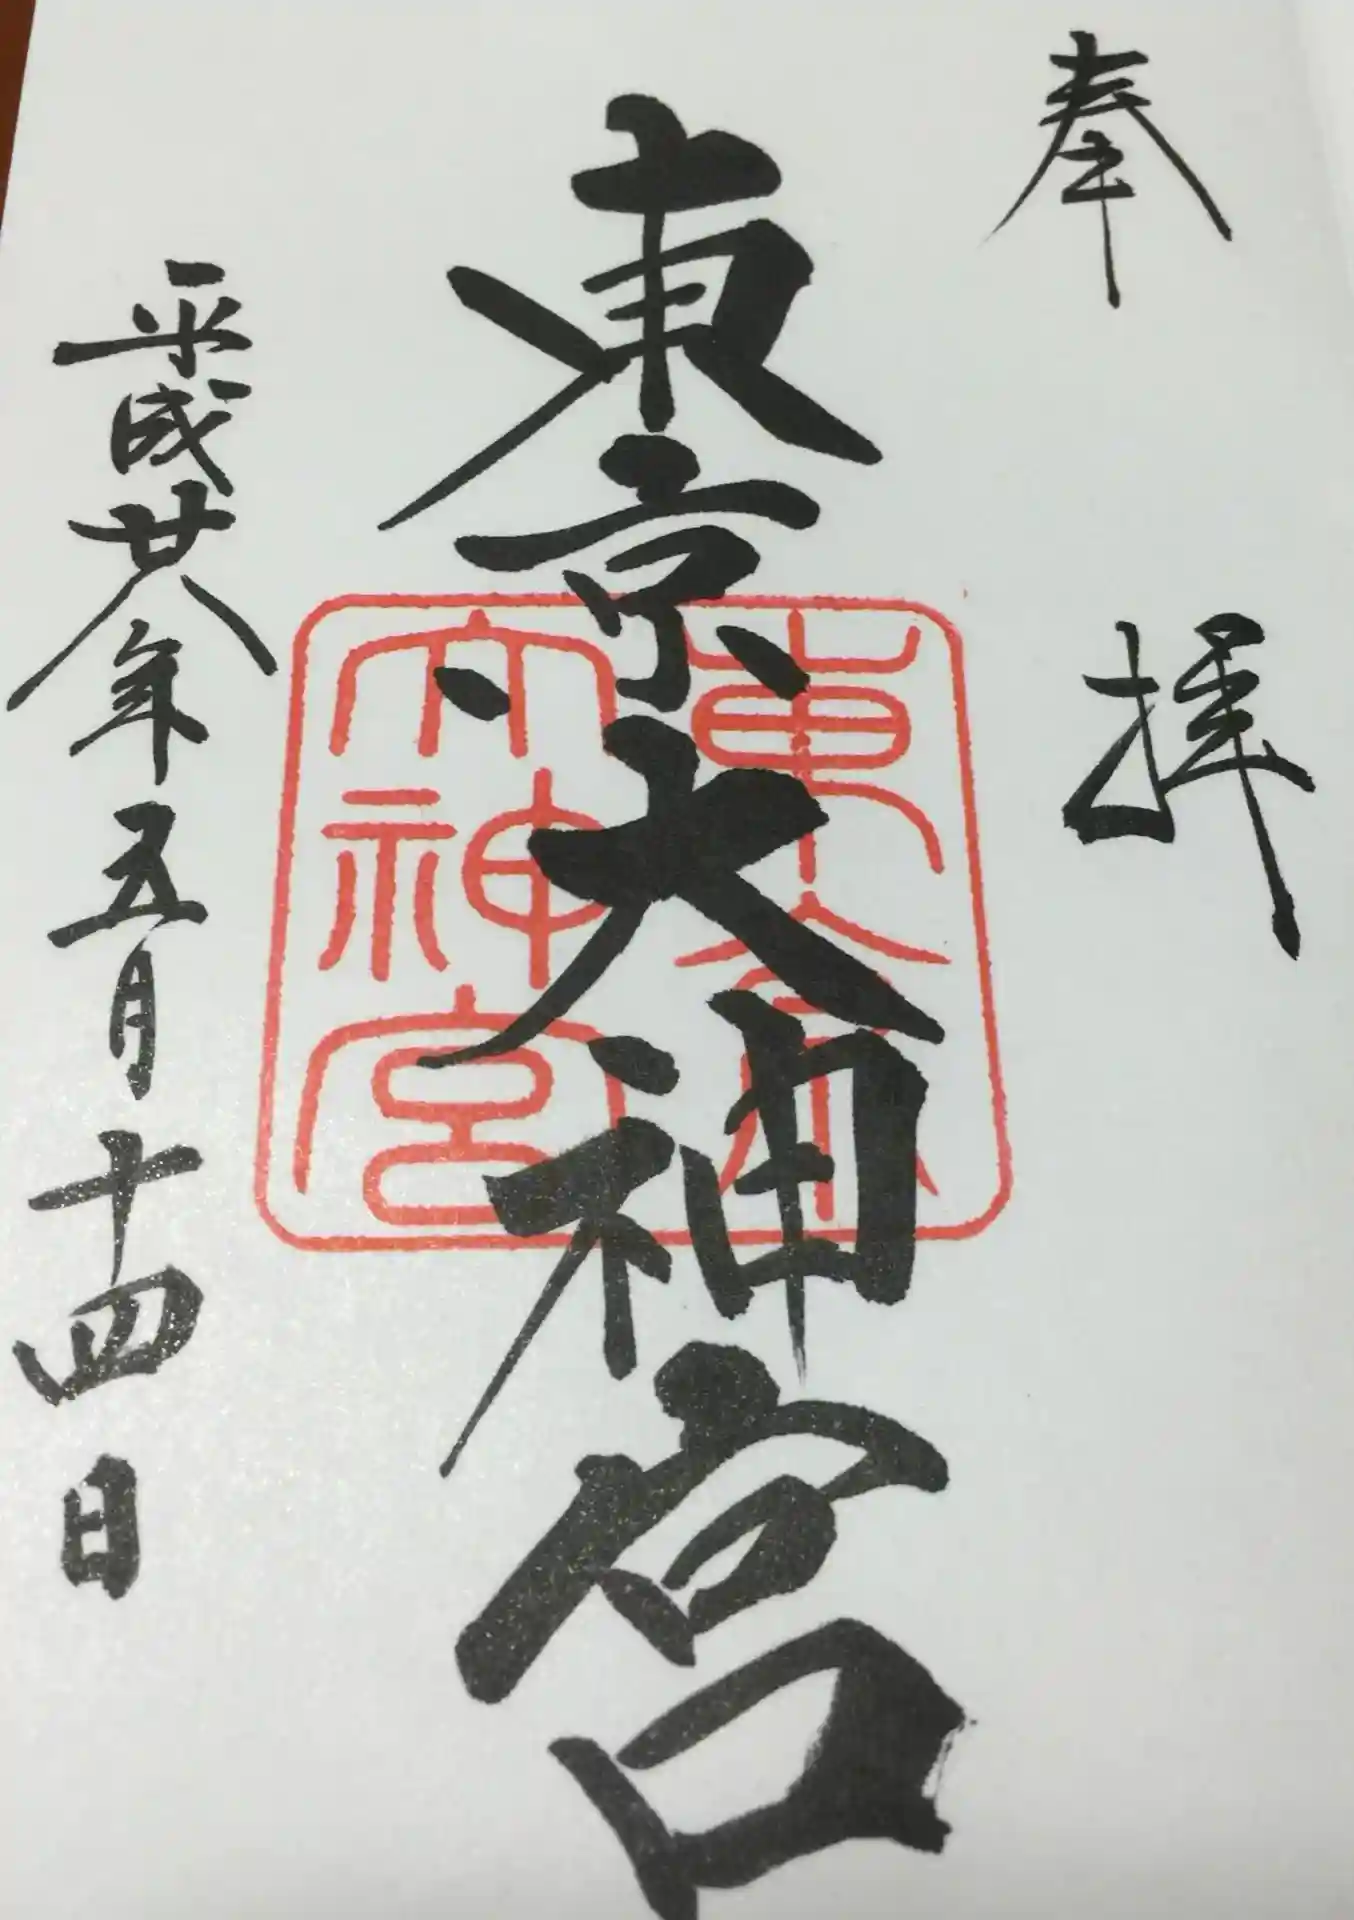 奉拝
東京大神宮
東京
大神宮
平成廿八年五月十四日